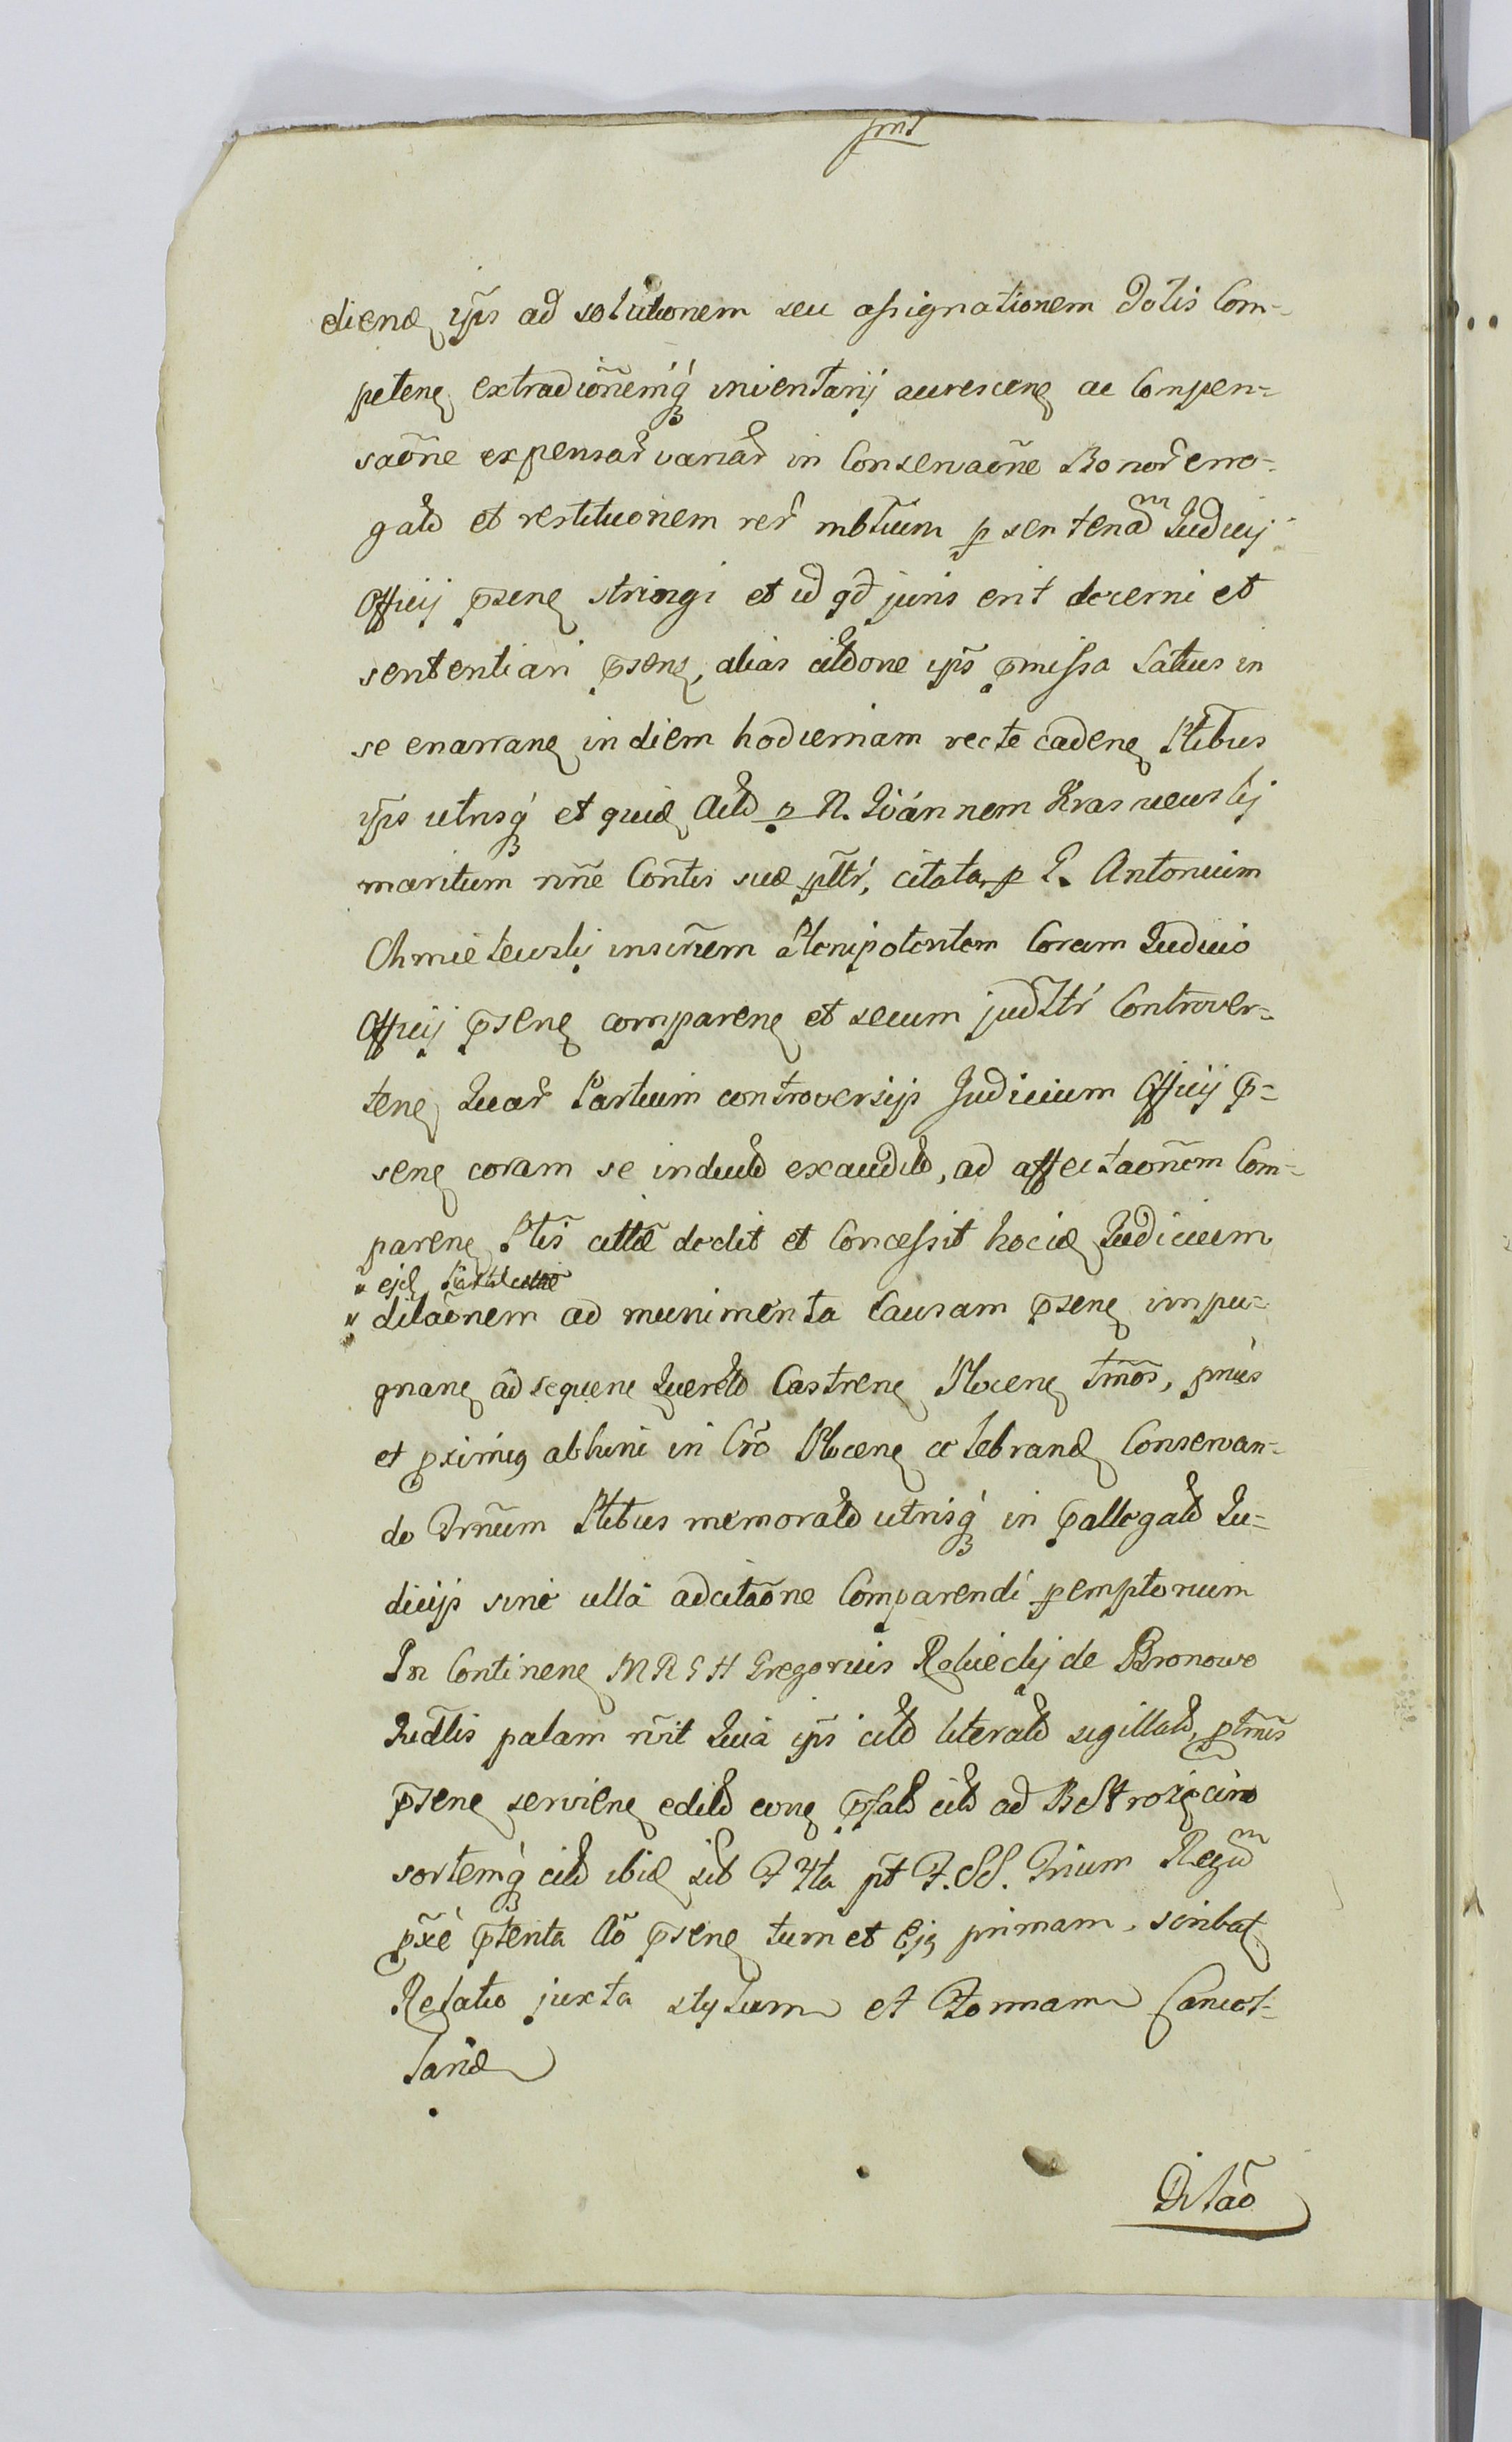 pnt
diend ip̄s ad solutionem seu assignationem dotis Com-
peteñ extradiōnemq́ inventarij auresceñ ac Compen-
saōne expensar̃ variar̃ in Conservaōne Bonor̃ erro-
gatt̃ et restituonem rer̃ mbtium p senteñam Judicij
Officij p̄señ stringi et id qd̃ juris erit decerni et
sententiari p̄señ, alias citt̃one ip̄s p̄missa Latius in
se enarrañ in diem hodiernam recte cadeñ Ptibus
ip̄s utrisq́ et quid Actt̃ p N. Joannem Krasnewskj
maritum nñe Contis suæ plt̃r, citata p G. Antonium
Chmielewskj insc̃iem Plenipotentem Coram Judicio
Officij p̄señ compareñ et secum judltr̃ Controver-
teñ Quar̃ Partium controversijs Judicium Officij p̄-
señ coram se induct̃ exaudit̃, ad affectaōnem Com-
pareñ Ptis citt̃æ dedit et Concessit hocid Judicium
ejd
dilaōnem ad munimenta Causam p̄señ impu-
gnañ ad sequeñ Querel̃ Castreñ Ploceñ tm̃os, pmus
et pximus abhinc in Crõ Ploceñ celebrand Conservan-
do Trm̃um Ptibus memoratt̃ utrisq́ in p̄allegatt̃ Ju-
dicijs sine ulla adcitaōne Comparendi pemptorium
In Contineñ M R G H Gregorius Rokicckj de Bronowo
Judlis palam rc̃vit Quia ip̄s citt̃ literatt̃ sigillatt̃, ptm̃is
p̄señ servieñ edit̃ eoñ p̄fatt̃ citt̃ ad B Strożęcino
sortemq́ citt̃ ibid sub F 4ta pt F. SS. Trium Regum
pxe p̄tenta Aõ p̄señ tum et Ejq primam. scribat
Relatio juxta stylum et Formam Cancel-
lariæ
Dilaõ